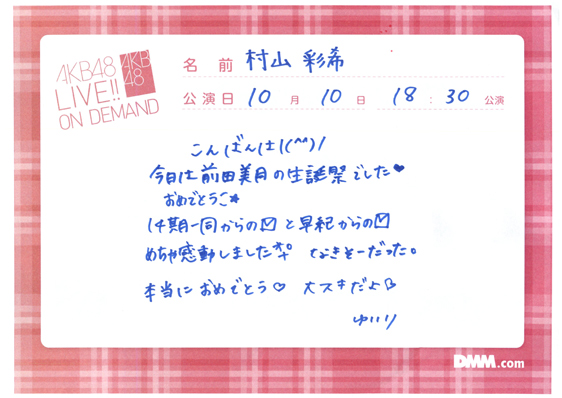 AKB48
LIVE!!
ON DEMAND
AKB
48
名前 村山 彩希
公演日 10月10日 18:30公演
こんばんは!(^^)/
今日は前田美月の生誕祭でした♥
おめでとう★
14期一同からの✉と早紀からの✉
めちゃ感動しました なきそーだった。
本当におめでとう♡ 大スキだよ♡
ゆいり
DMM.com